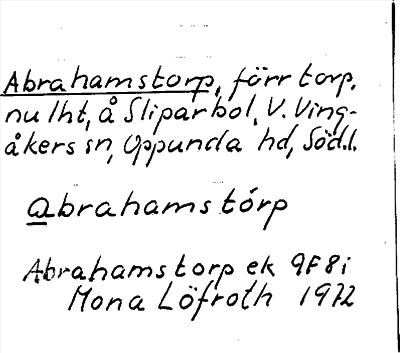 Abrahamstorp, förr torp,
nu lht, å Sliparbol, V. Ving-
åkers sn, Oppunda hd, Södl.
abrahamstórp
Abrahamstorp ek 9F8i
Mona Löfroth 1972